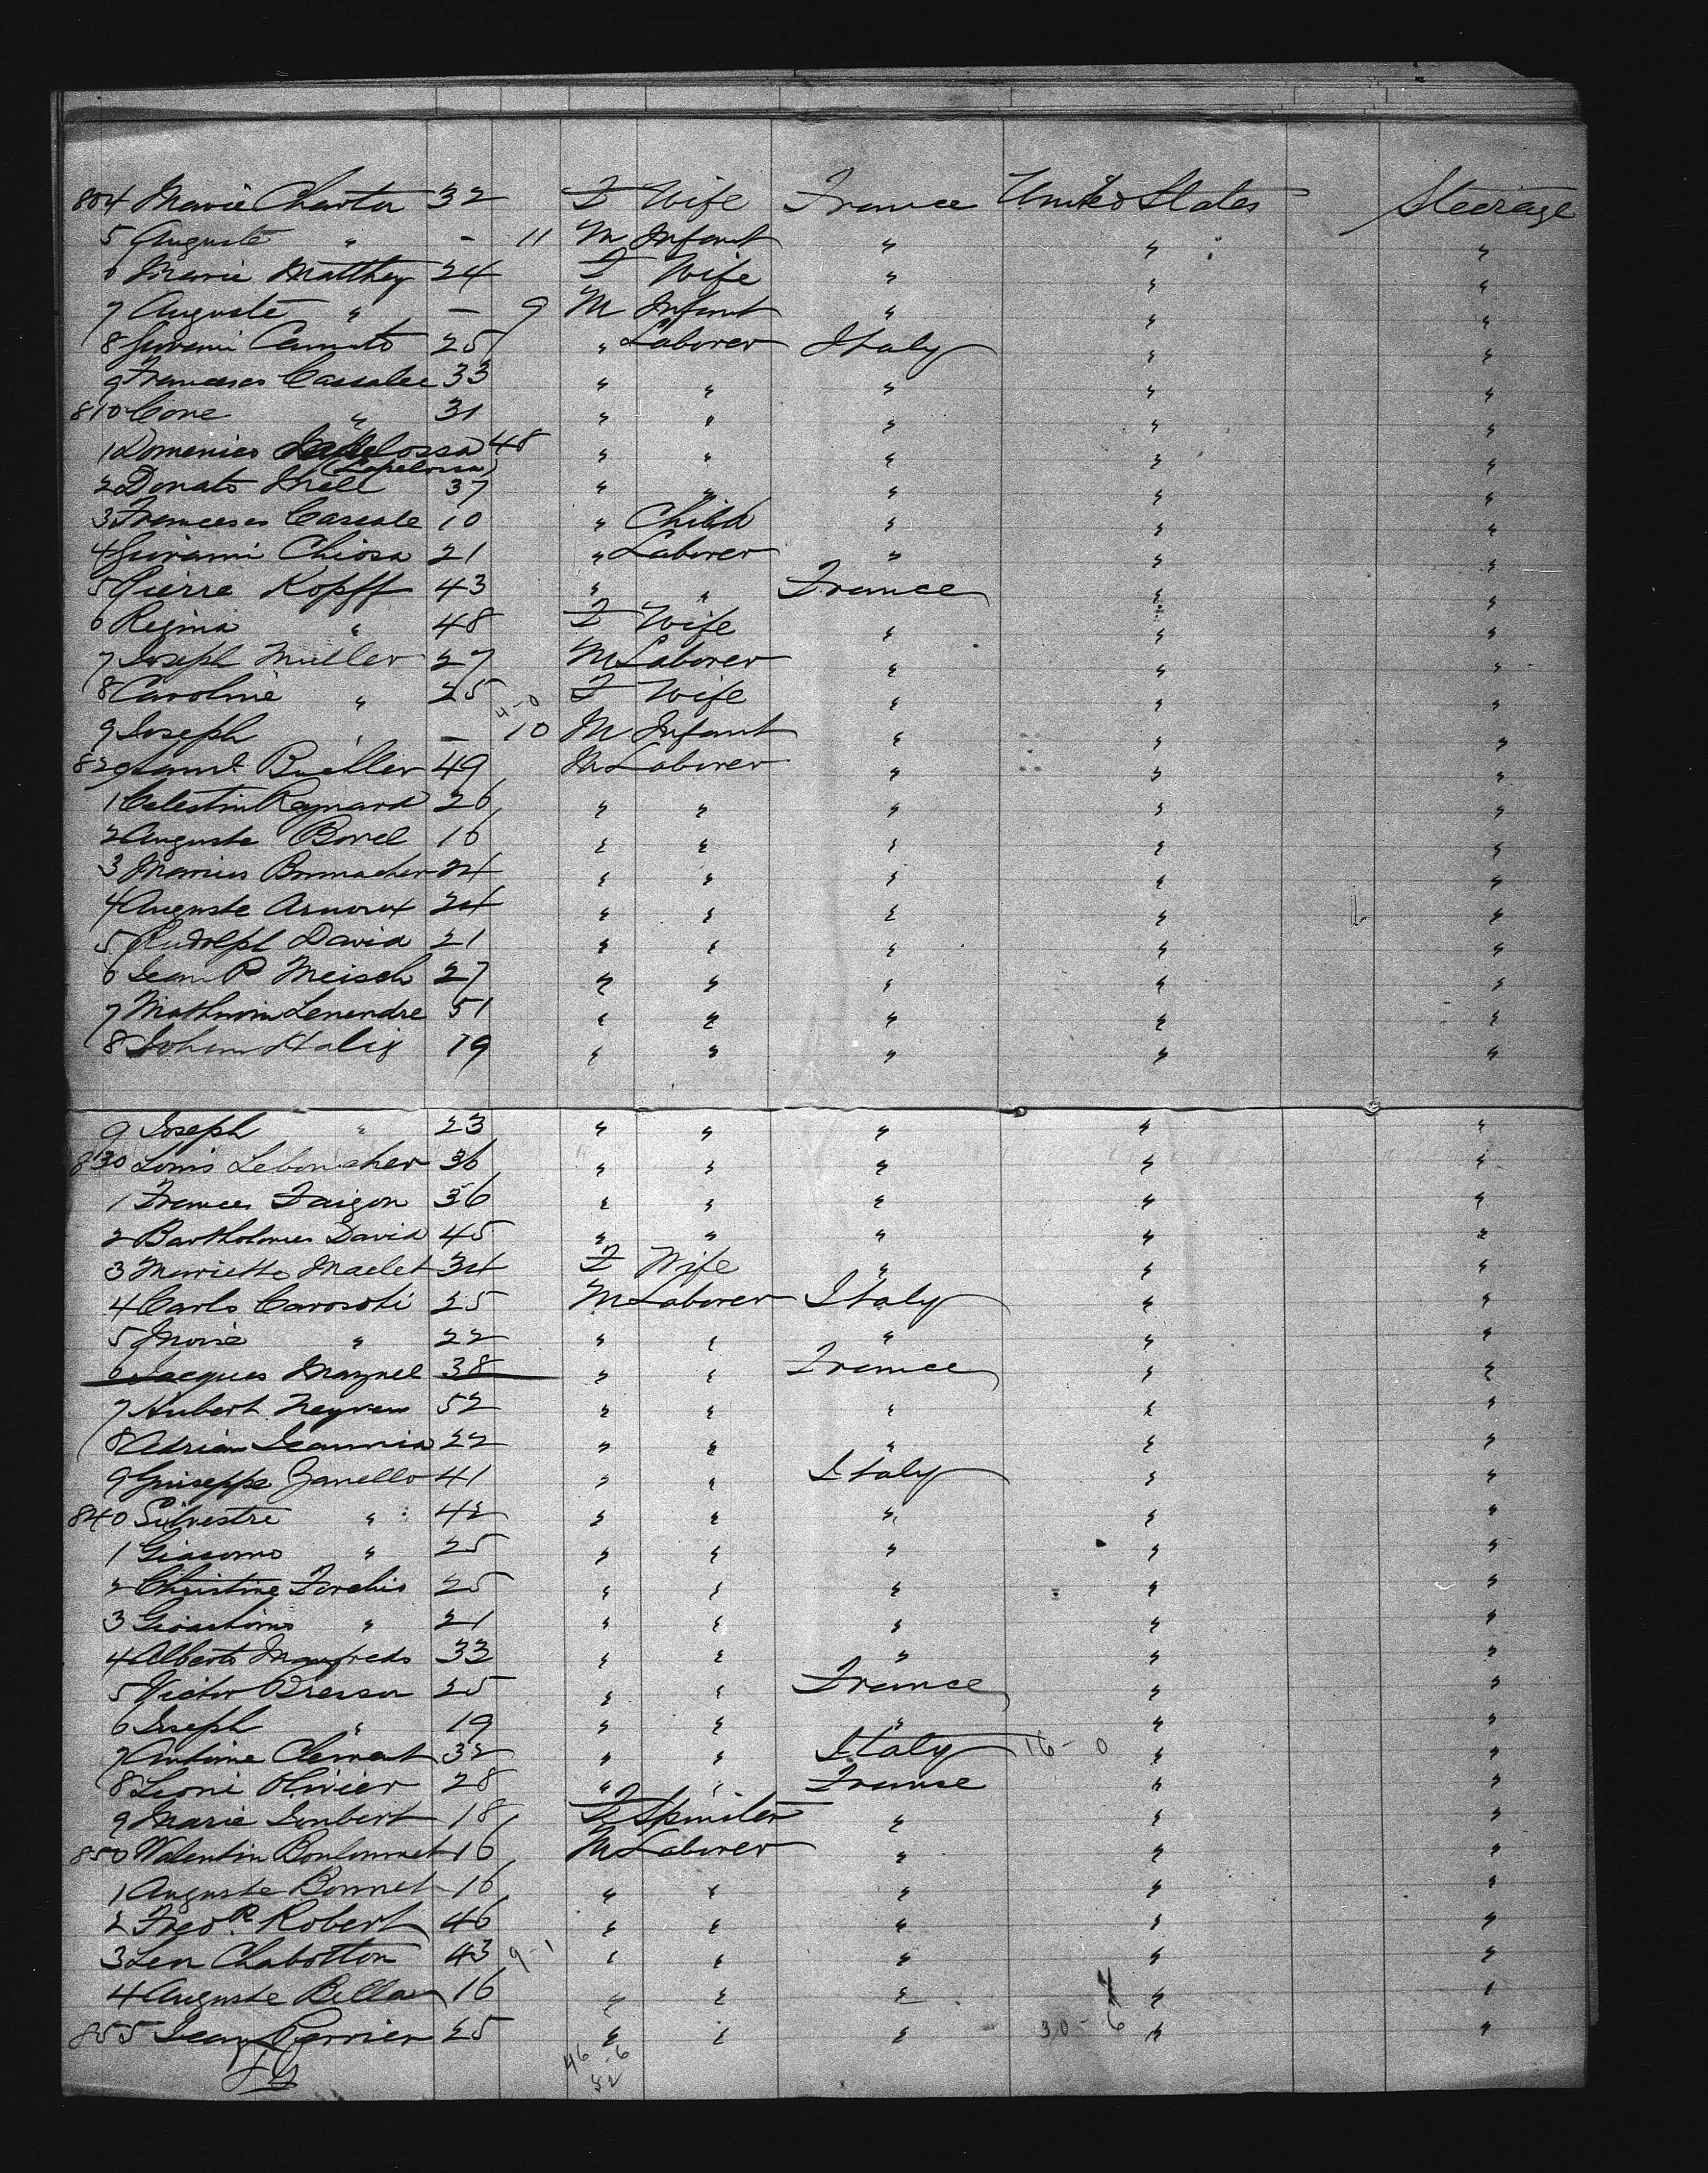 804 Marie Charton 32 F Wife France United States Steerage
5 Auguste " - 11 M Infant " " "
6 Marie Matthey 24 F Wife " " "
7 Auguste " - 9 M Infant " " "
8 Giovanni Canuto 25 " Laborer Italy " "
9 Francesco Cascalee 33 " " " " "
810 Cone " 31 " " " " "
1 Domenico Lapelossa 48 " " " " "
(Lapelossa)
2 Donato Mell 37 " " " " "
3 Francesco Cascale 10 " Child " " "
4 Giovanni Chiosa 21 " Laborer " " "
5 Pierre Kopff 43 " " France " "
6 Regina " 48 F Wife " " "
7 Joseph Muller 27 M Laborer " " "
8 Caroline " 25 F Wife " " "
4-0
9 Joseph " - 10 M Infant " " "
820 Saml. Bueller 49 M Laborer " " "
1 Celestin Raynard 26 " " " " "
2 Auguste Borel 16 " " " " "
3 Marius 24 " " " " "
4 Auguste Arnoux 24 " " " " "
5 Rudolph David 21 " " " " "
6 Jean P Meisch 27 " " " " "
7 Mathurin Lenendre 51 " " " " "
8 Johann Halig 19 " " " " "
9 Joseph " 23 " " " " "
830 Louis Leboucher 36 " " " " "
1 Frances Faigon 36 " " " " "
2 Bartholomes David 45 " " " " "
3 Marietta Maelet 34 F Wife " " "
4 Carlo Carosoti 25 M Laborer Italy " "
5 " 22 " " " " "
6 Jacques Maynel 38 " " France " "
7 Hubert Neyven 52 " " " " "
8 Adrian Jeannia 22 " " " " "
9 Guiseppe Zanello 41 " " Italy " "
840 Silvestre " 42 " " " " "
1 Giacomo " 25 " " " " "
2 Christine Forchio 25 " " " " "
3 Gioachimo " 21 " " " " "
4 Alberto Manfredo 33 " " " " "
5 Victor Bresson 25 " " France " "
6 Joseph " 19 " " " " "
7 Antoine Clement 32 " " Italy 16-0 " "
8 Leoni Olivier 28 " " France " "
9 Marie Joubert 18 F Spinster " " "
850 Valentin 16 M Laborer " " "
1 Auguste Bonnet 16 " " " " "
2 Fred R. Robert 46 " " " " "
3 Leon Chabotton 43 9-1 " " " " "
4 Auguste Bellau 16 " " " " "
855 Jean Perrier 25 " " " 30-6 " "
46-6
52